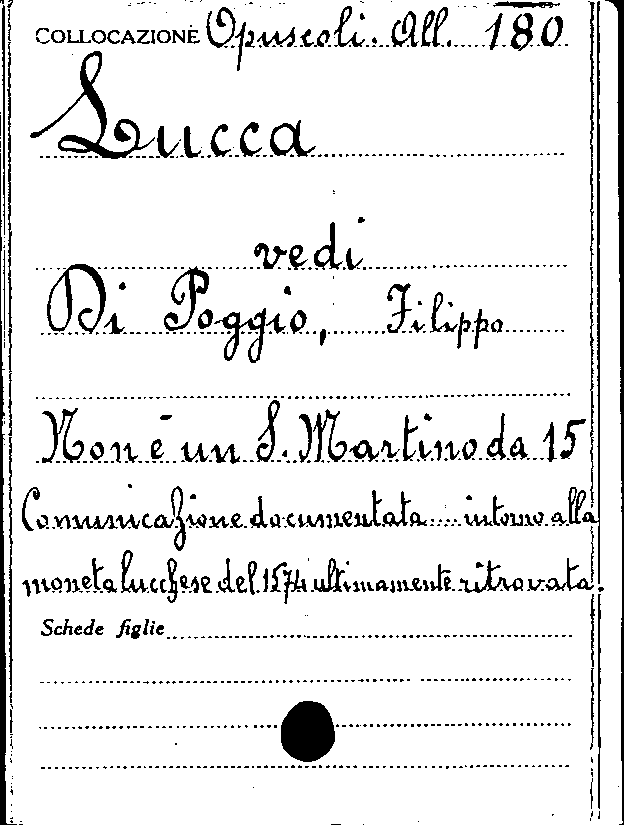 COLLOCAZIONE Opuscoli. All. 180
Lucca
vedi
Di Poggio, Filippo
Non è un S. Martino da 15
Comunicazione documentata .... intorno alla
moneta lucchese del 1574 ultimamente ritrovata.
Schede figlie